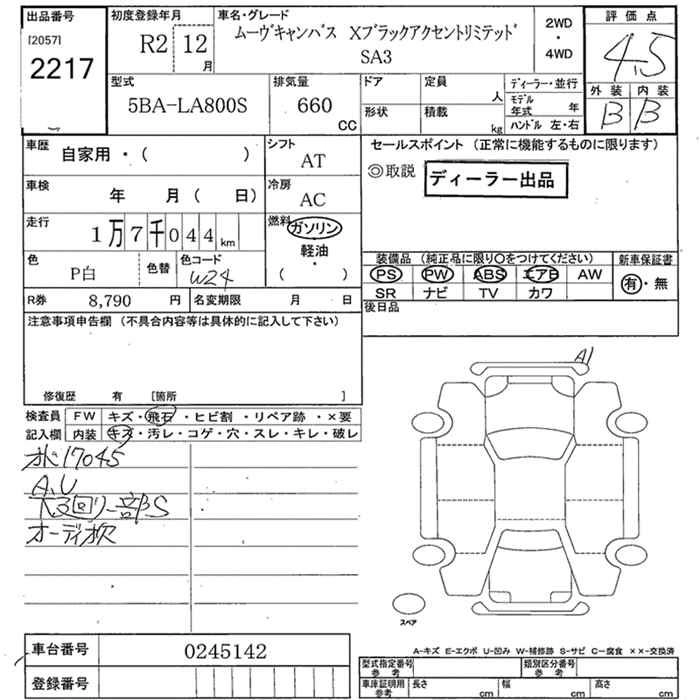 出品番号
[2057]
2217
初度登録年月
R2 12 月
車名・グレード
ムーヴキャンバス Xブラックアクセントリミテッド
SA3
2WD
・
4WD
評価点
4.5
外装 内装
B B
型式
5BA-LA800S
排気量
660 CC
ドア
形状
定員 人
積載 kg
ディーラー・並行
モデル年式 年
ハンドル 左・右
車歴
自家用・( )
シフト
AT
車検
年 月 ( 日)
冷房
AC
走行
1万7千044km
燃料
ガソリン
軽油・
( )
色
P白
色替
色コード
W24
R券 8,790 円
名変期限 月 日
セールスポイント (正常に機能するものに限ります)
◎取説 ディーラー出品
装備品 (純正品に限り〇をつけてください)
PS PW ABS エアB AW
SR ナビ TV カワ
新車保証書
有・無
後日品
注意事項申告欄 (不具合内容等は具体的に記入して下さい)
修復歴 有 [箇所 ]
検査員
記入欄
FW キズ・飛石・ヒビ割・リペア跡・×要
内装 キズ・汚レ・コゲ・穴・スレ・キレ・破レ
17045
A.U
下回り一部S
オーディオ欠
A1
スペア
A-キズ E-エクボ U-凹み W-補修跡 S-サビ C-腐食 ××-交換済
車台番号 0245142
登録番号
型式指定番号
参考
類別区分番号
参考
車庫証明用
参考
長さ cm 幅 cm 高さ cm